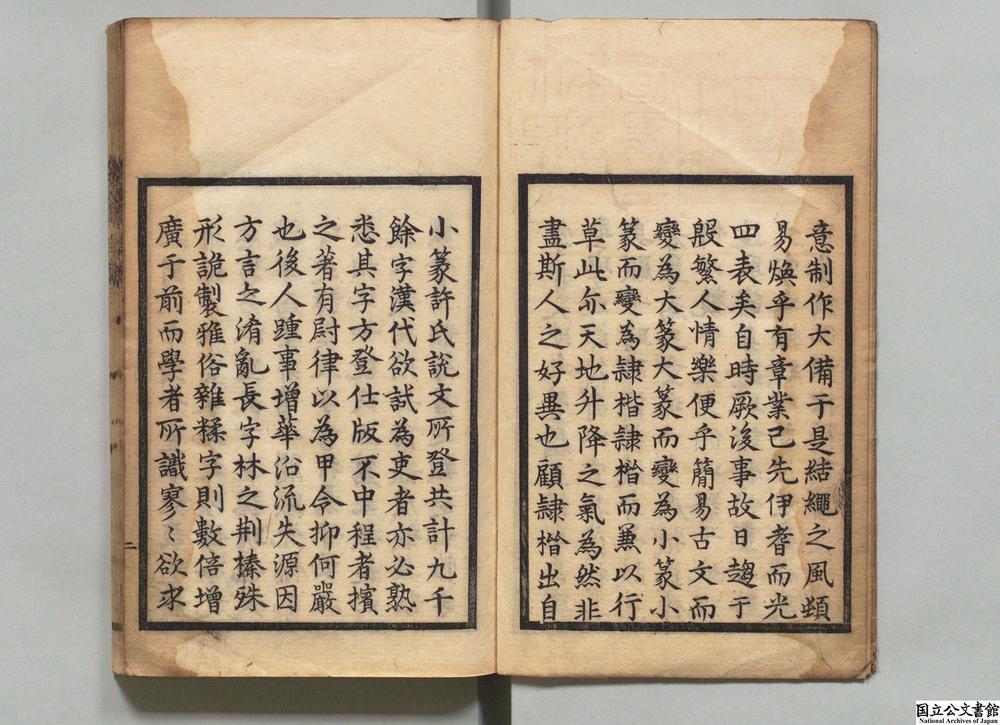 意制作大備于是結繩之風頓
易煥乎有章業已先伊耆而光
四表矣自時厥後事故日趨于
殷繁人情樂便乎簡易古文而
變為大篆大篆而變為小篆小
篆而變為隷楷隷楷而兼以行
草此亦天地升降之氣為然非
盡斯人之好異也顧隷楷出自
小篆許氏說文所登共計九千
餘字漢代欲試為吏者亦必熟
悉其字方登仕版不中程者擯
之著有尉律以為甲令抑何嚴
也後人踵事增華沿流失源因
方言之淆亂長字林之荆榛殊
形詭製雅俗雜糅字則數倍增
廣于前而學者所識寥〻欲求
二
国立公文書館
National Archives of Japan